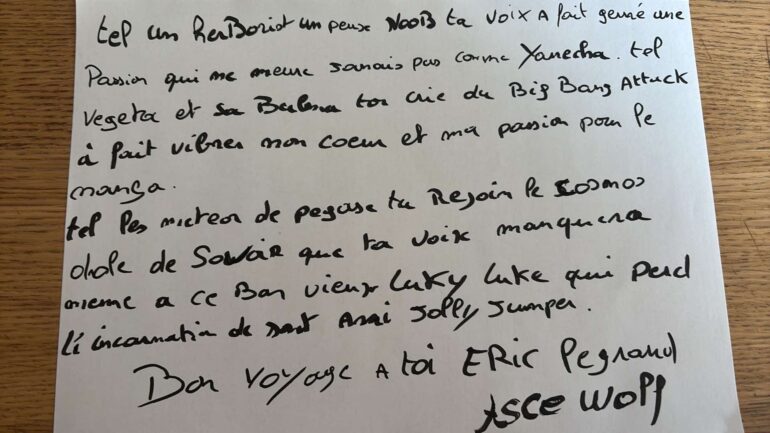 tel un herBorist un peux NooB ta voix A fait germé une
Passion qui ne meure jamais pas comme Yamcha. tel
Vegeta et sa Bulma ton crie du Big Bang Attack
à fait vibrer mon coeur et ma passion pour le
manga.
tel les meteor de pegase tu Rejoin le cosmos
dole de Savoir que ta voix manquera
meme a ce Bon vieux Luky Luke qui perd
l'incarnation de son Ami Jolly Jumper.
Bon voyage A toi ERic Legrand
ASCE Wolf